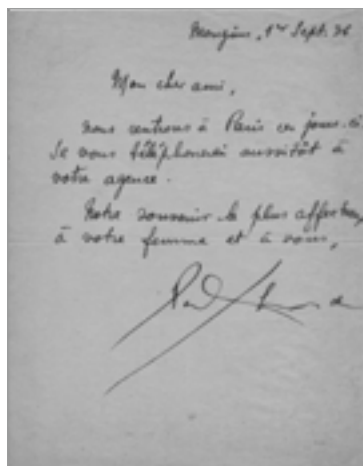 Mougins, 1er Sept. 36
Mon cher ami,
nous rentrons à Paris ces jours-ci
Je vous téléphonerai aussitôt à
votre agence.
Notre souvenir le plus affectueux,
à votre femme et à vous,
Paul Eluard